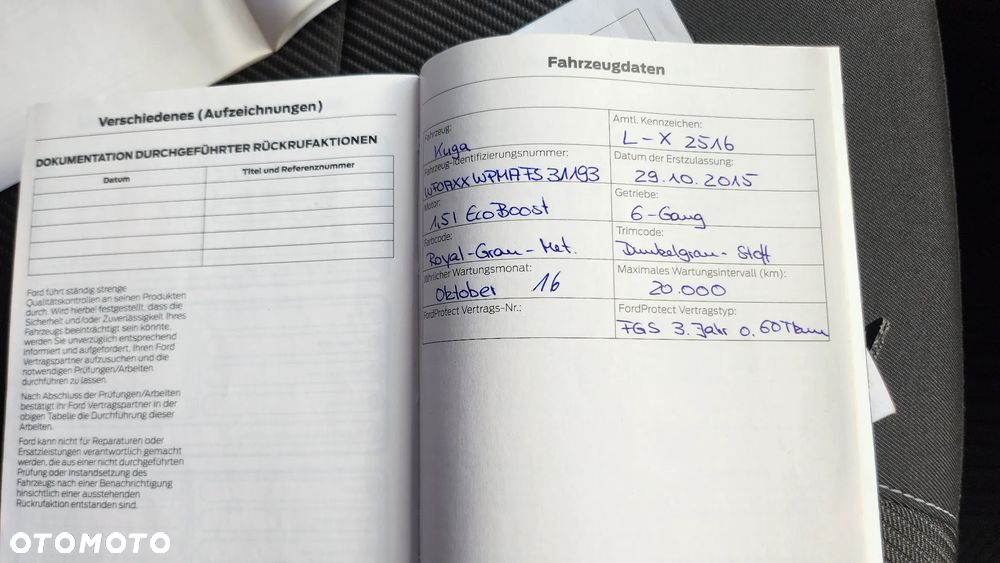 Verschiedenes (Aufzeichnungen)
DOKUMENTATION DURCHGEFÜHRTER RÜCKRUFAKTIONEN
Datum
Titel und Referenznummer
Ford führt ständig strenge
Qualitätskontrollen an seinen Produkten
durch. Wird hierbei festgestellt, dass die
Sicherheit und/oder Zuverlässigkeit Ihres
Fahrzeugs beeinträchtigt sein könnte,
werden Sie unverzüglich entsprechend
informiert und aufgefordert, Ihren Ford
Vertragspartner aufzusuchen und die
notwendigen Prüfungen/Arbeiten
durchführen zu lassen.
Nach Abschluss der Prüfungen/Arbeiten
bestätigt Ihr Ford Vertragspartner in der
obigen Tabelle die Durchführung dieser
Arbeiten.
Ford kann nicht für Reparaturen oder
Ersatzleistungen verantwortlich gemacht
werden, die aus einer nicht durchgeführten
Prüfung oder Instandsetzung des
Fahrzeugs nach einer Benachrichtigung
hinsichtlich einer ausstehenden
Rückrufaktion entstanden sind.
Fahrzeugdaten
Fahrzeug:
Kuga
Amtl. Kennzeichen:
L-X 2516
Fahrzeug-Identifizierungsnummer:
WF0AXXWPMAFS31193
Datum der Erstzulassung:
29.10.2015
Motor:
1,5l EcoBoost
Getriebe:
6-Gang
Farbcode:
Royal-Grau-Met.
Trimcode:
Dunkelgrau-Stoff
Jährlicher Wartungsmonat:
Oktober 16
Maximales Wartungsintervall (km):
20.000
FordProtect Vertrags-Nr.:
FordProtect Vertragstyp:
FGS 3.Jahr o. 60Tkm
OTOMOTO